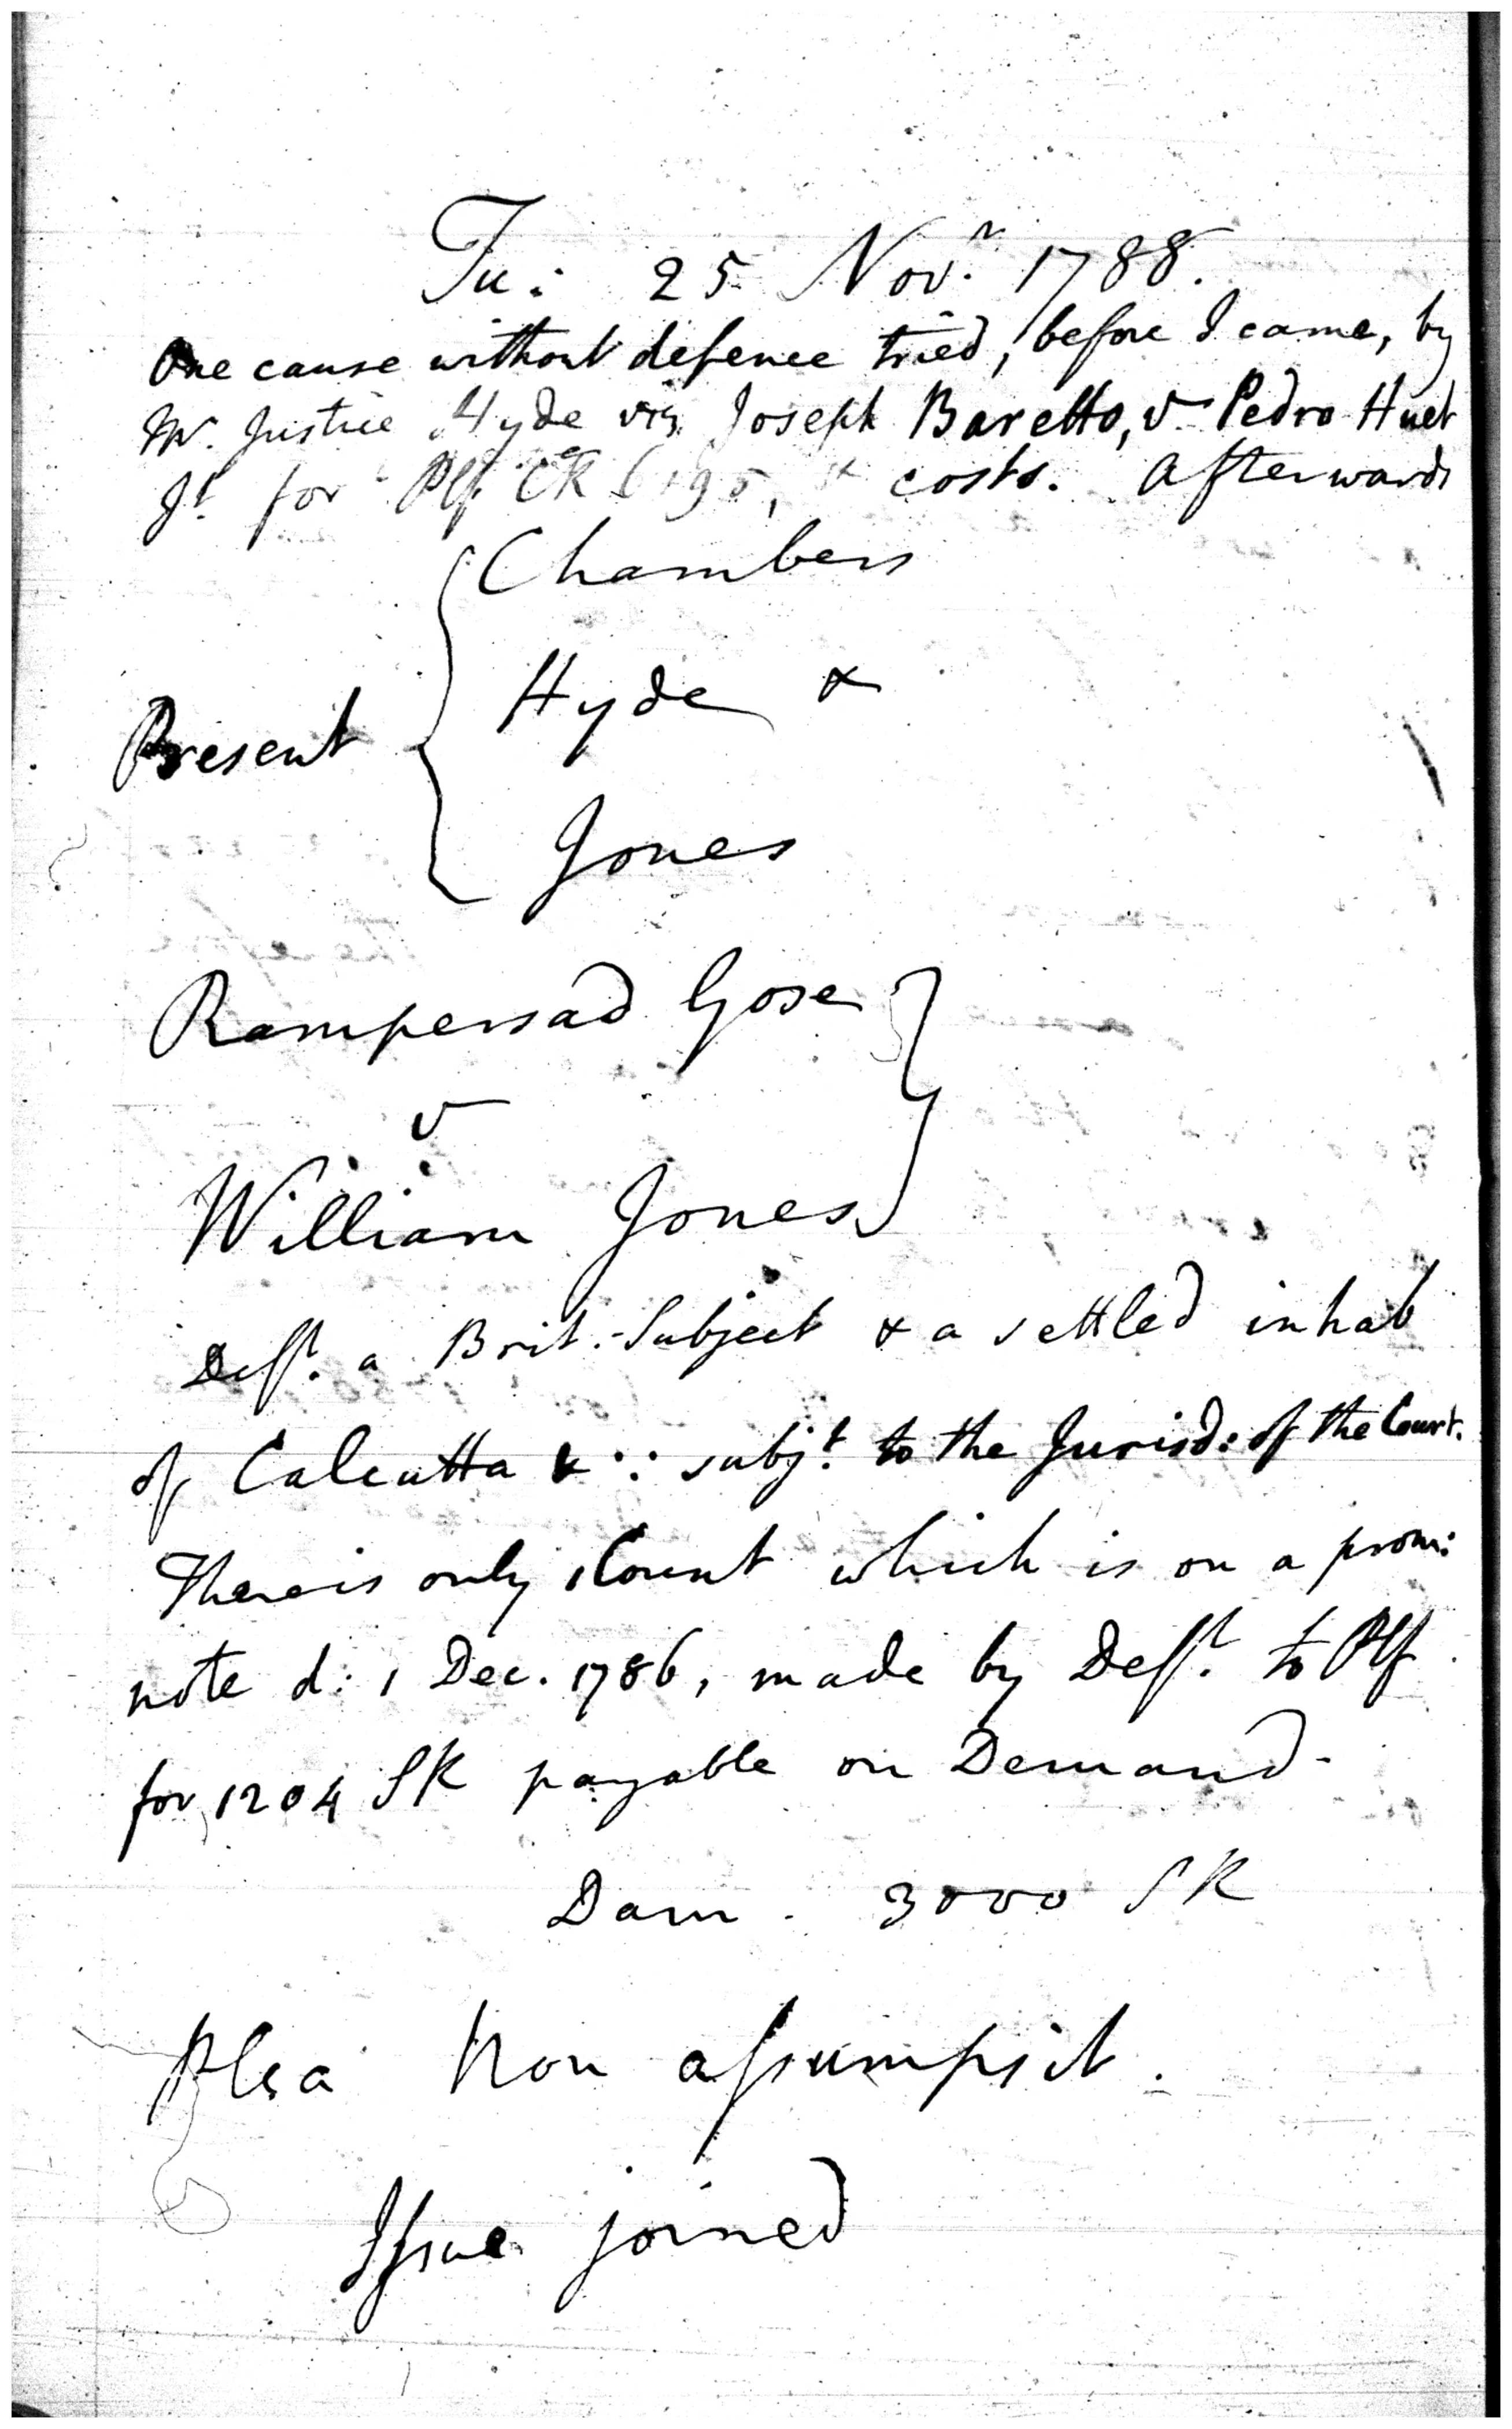 Tu: 25 Novr. 1788.
One cause without defence tried, before I came, by
Mr. Justice Hyde viz Joseph Baretto, v Pedro Huet
Jt. for Plf. CR & costs. Afterwards
Chambers
Hyde &
Present
Jones
Rampersad Gose
v
William Jones
Deft. a Brit. Subject & a settled inhab
of Calcutta & ∴ subjt. to the Jurisd: of the Court.
There is only 1 Count which is on a prom:
note d: 1 Dec. 1786, made by Deft. to Plf
for 1204 SR payable on Demand.
Dam. 3000 SR
Plea Non assumpsit.
Issue joined